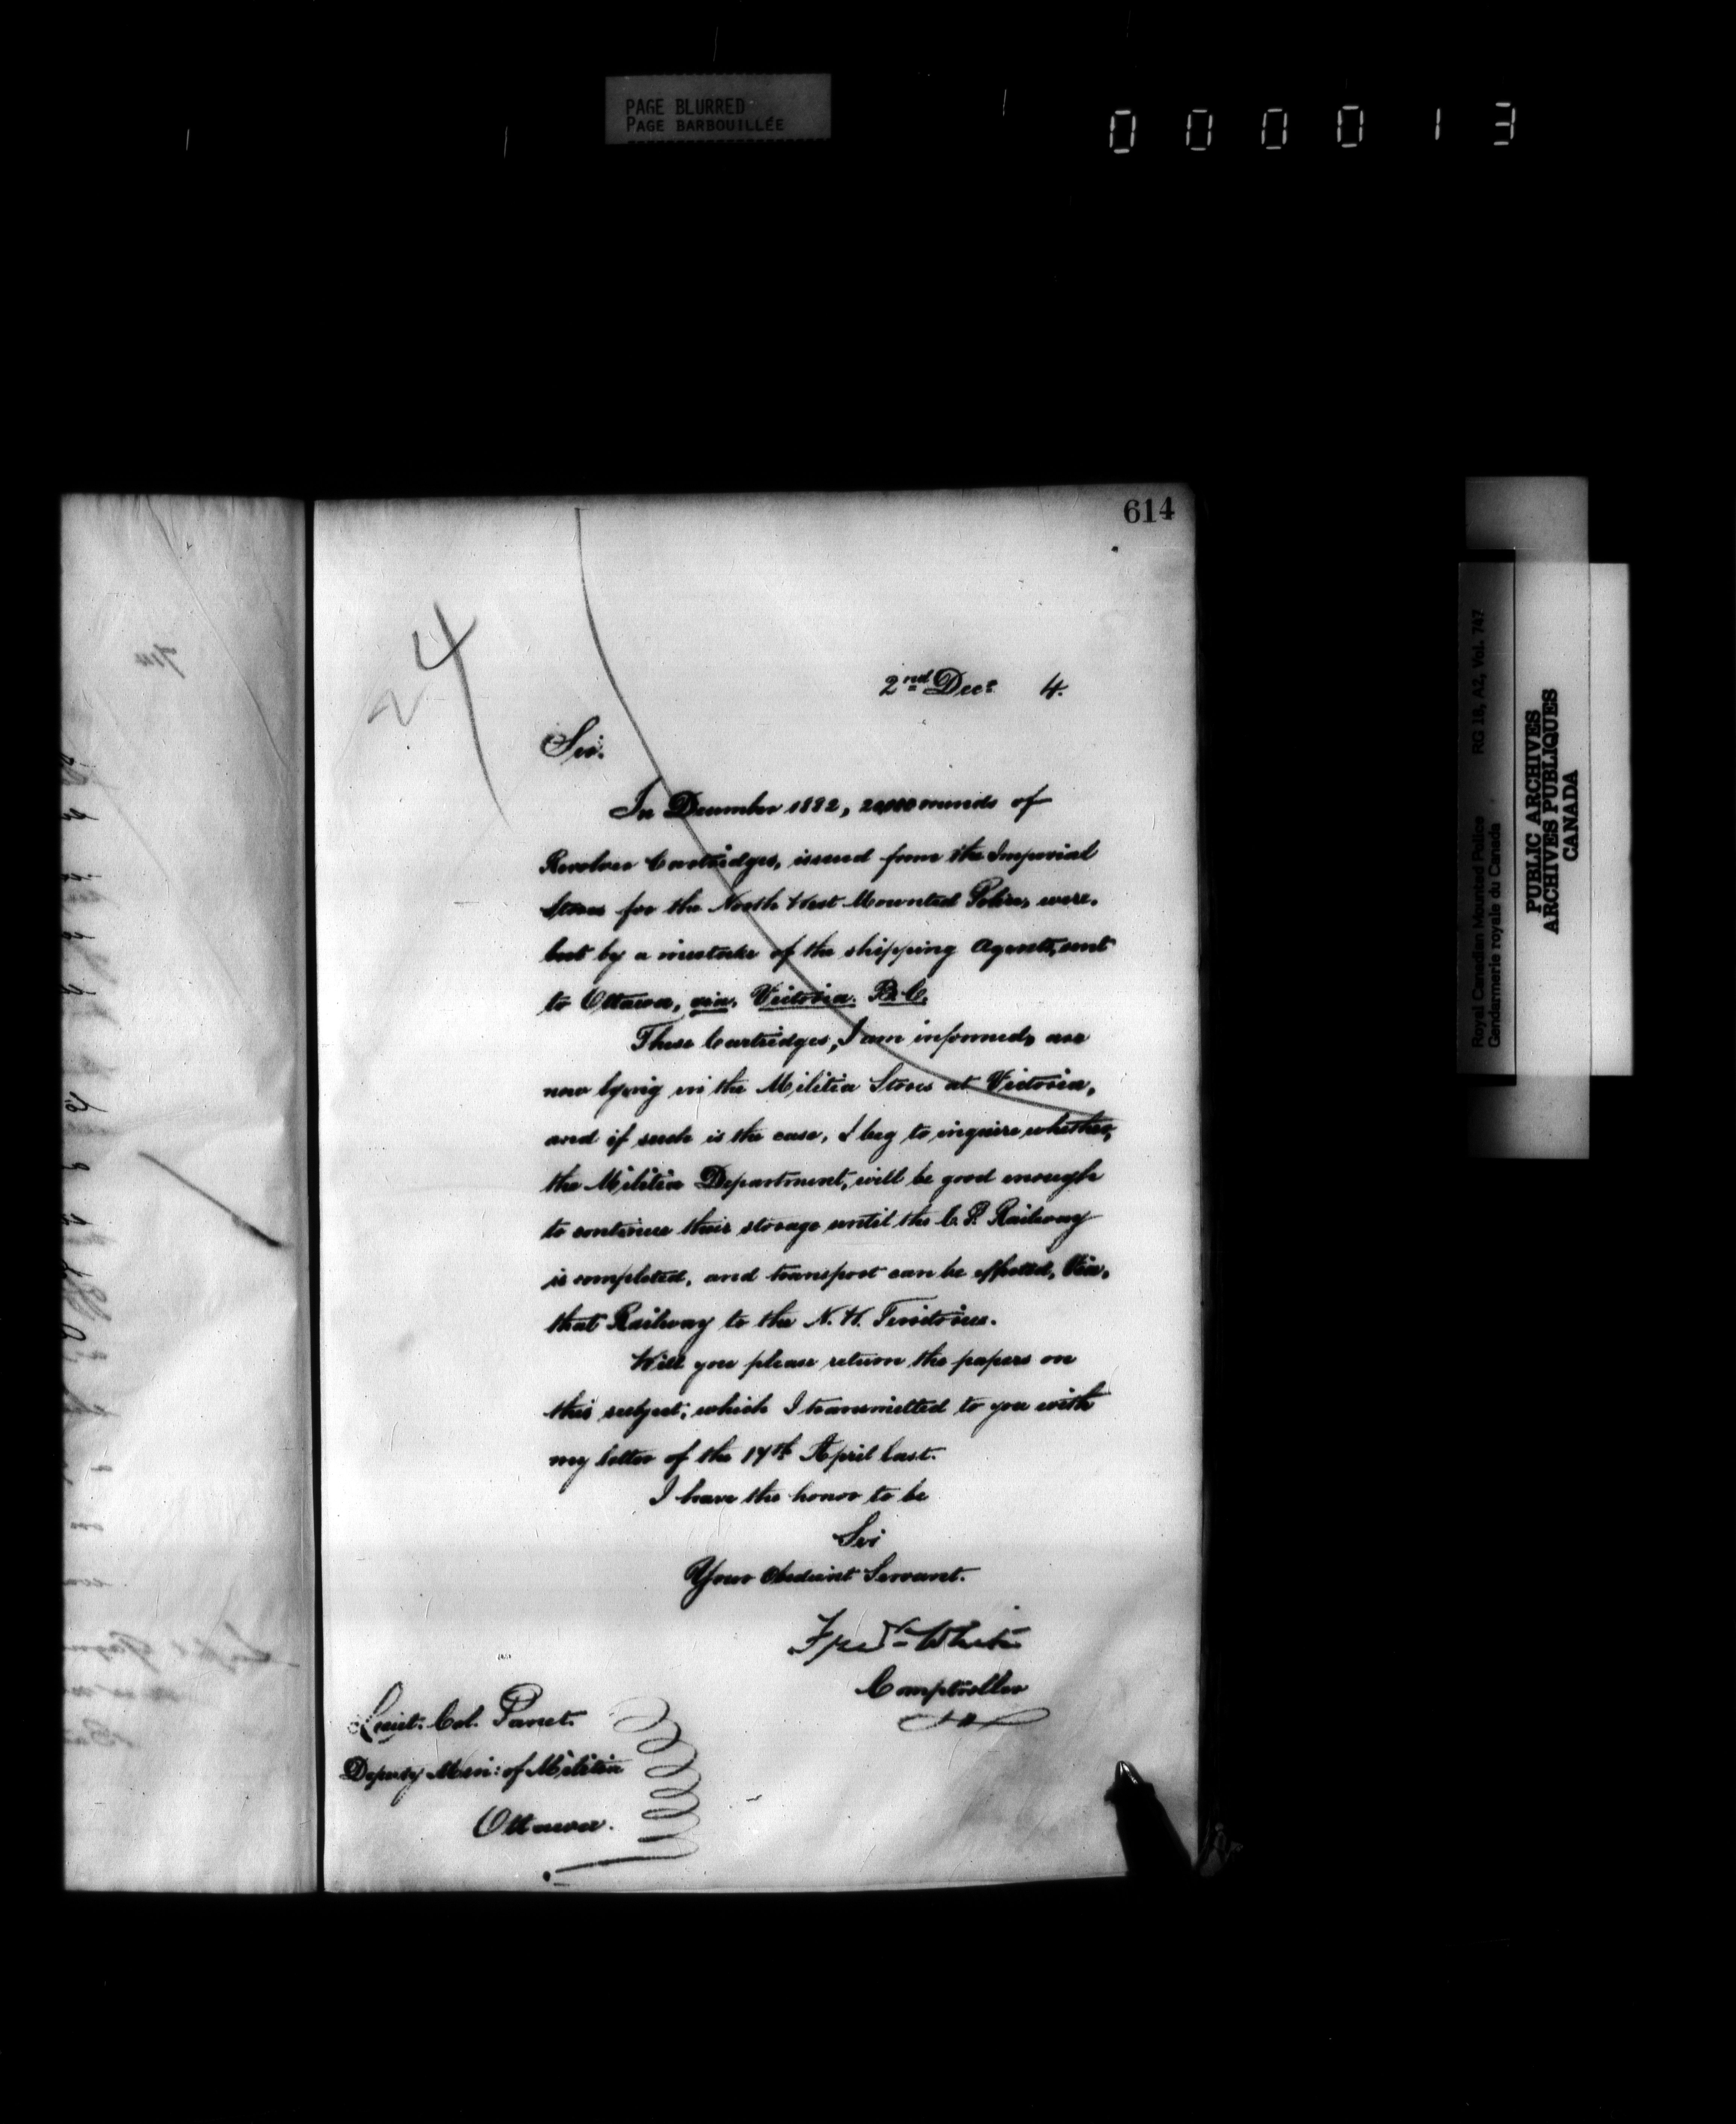 PAGE BLURRED
PAGE BARBOUILLÉE
000013
614
24
2nd Decr 4.
Sir.
In December 1882, 20,000 rounds of
Revolver Cartridges, issued from the Imperial
Stores for the North West Mounted Police, were,
but by a mistake of the shipping Agents, sent
to Ottawa, via. Victoria. B.C.
These Cartridges, I am informed, are
now lying in the Militia Stores at Victoria,
and if such is the case, I beg to inquire whether,
the Militia Department, will be good enough
to continue their storage until the C.P. Railway
is completed, and transport can be effected, Via,
that Railway to the N.W. Territories.
Will you please return the papers on
this subject, which I transmitted to you with
my letter of the 17th April last.
I have the honor to be
Sir
Your Obedient Servant.
Fred White
Comptroller
Lieut. Col. Panet.
Deputy Min: of Militia
Ottawa.
Royal Canadian Mounted Police RG 18, A2, Vol. 747
Gendarmerie royale du Canada
PUBLIC ARCHIVES
ARCHIVES PUBLIQUES
CANADA